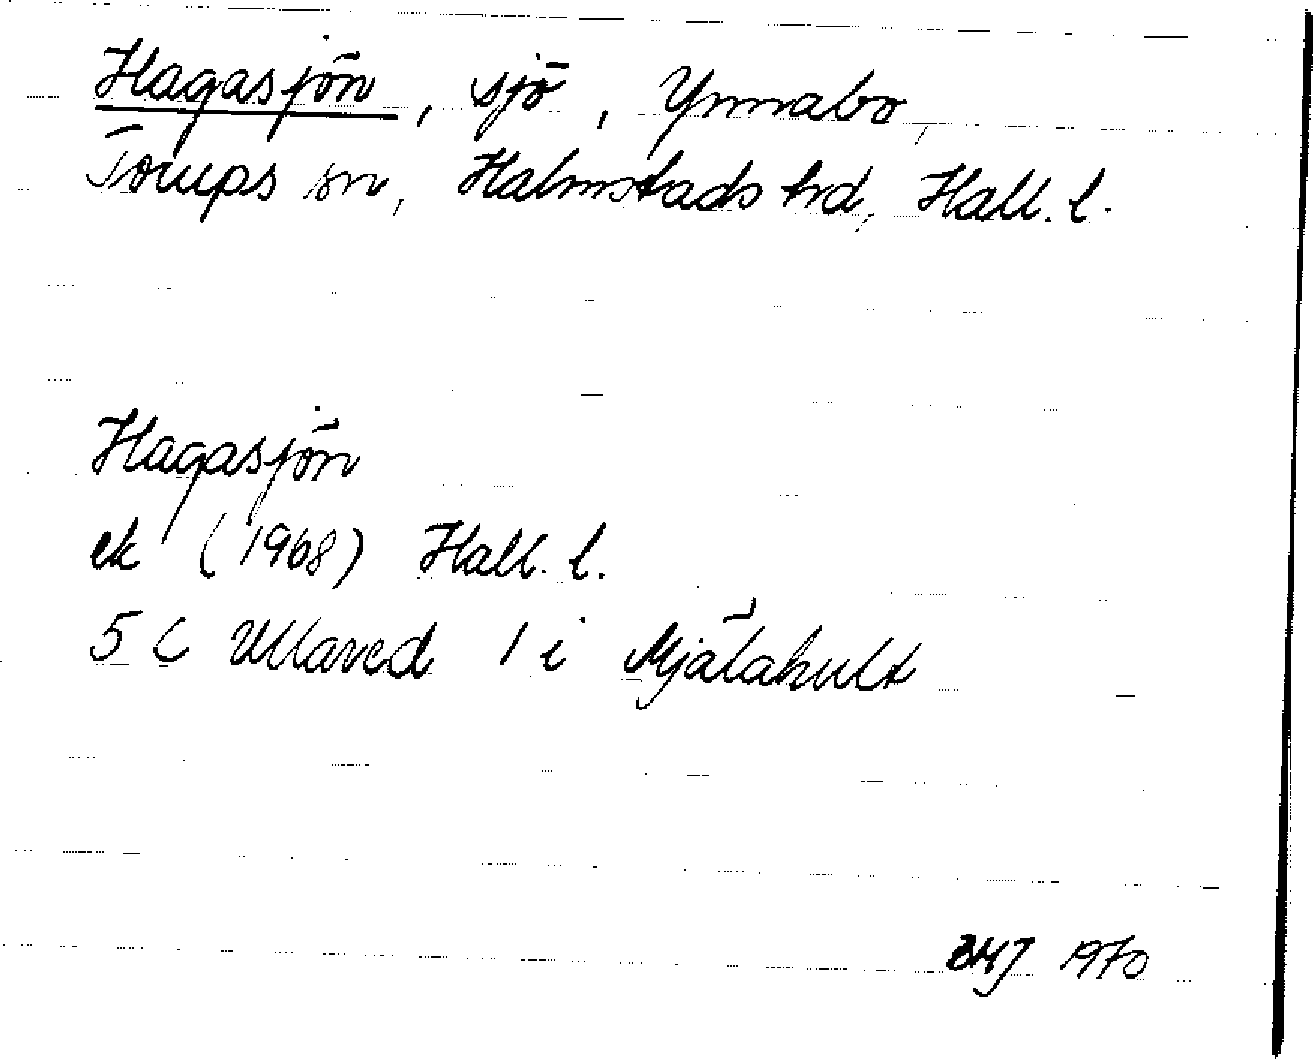 Hagasjön, sjö, Ynnabo,
Torups sn, Halmstads hd, Hall. l.
Hagasjön
ek (1968) Hall. l.
5 C Ullared 1 i Mjälahult
1970